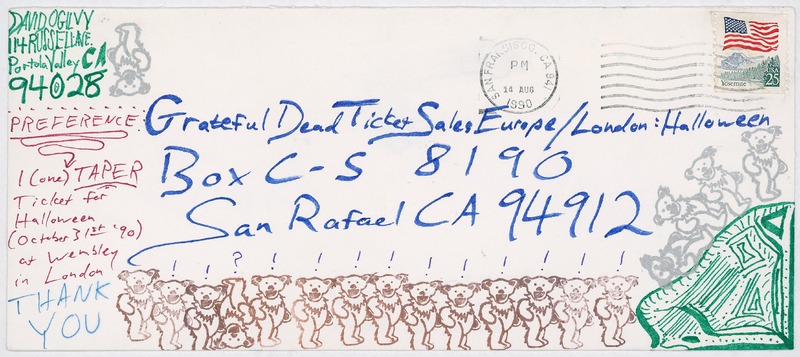 DAVID OGILVY
114 RUSSELL AVE.
Portola Valley CA
94028
PREFERENCE:
1 (one) TAPER
Ticket for
Halloween
(October 31st '90)
at Wembley
in London
THANK
YOU
SAN FRANCISCO, CA 941
PM
14 AUG
1990
USA
25
Yosemite
Grateful Dead Ticket Sales Europe/London: Halloween
Box C-S 8190
San Rafael CA 94912
! ! ? ! ! ! ! ! ! ! ! ! !